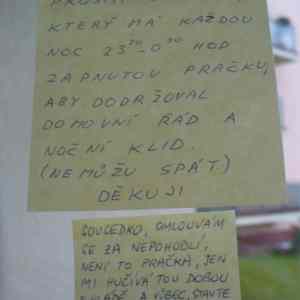 KTERÝ MÁ KAŽDOU
NOC 23⁰⁰-0³⁰ HOD
ZAPNUTOU PRAČKU,
ABY DODRŽOVAL
DOMOVNÍ ŘÁD A
NOČNÍ KLID.
(NEMŮŽU SPÁT)
DĚKUJI
SOUSEDKO, OMLOUVÁM
SE ZA NEPOHODLÍ,
NENÍ TO PRAČKA, JEN
MI HUČÍVÁ TOU DOBOU
V HLAVĚ. A VŮBEC, STAVTE